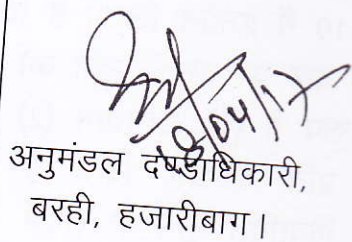 18/04/17
अनुमंडल दण्डाधिकारी,
बरही, हजारीबाग।